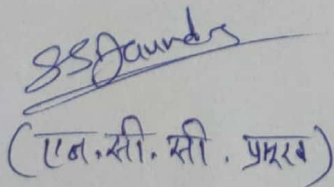 SSJaunds
(एन.सी.सी. प्रमुख)